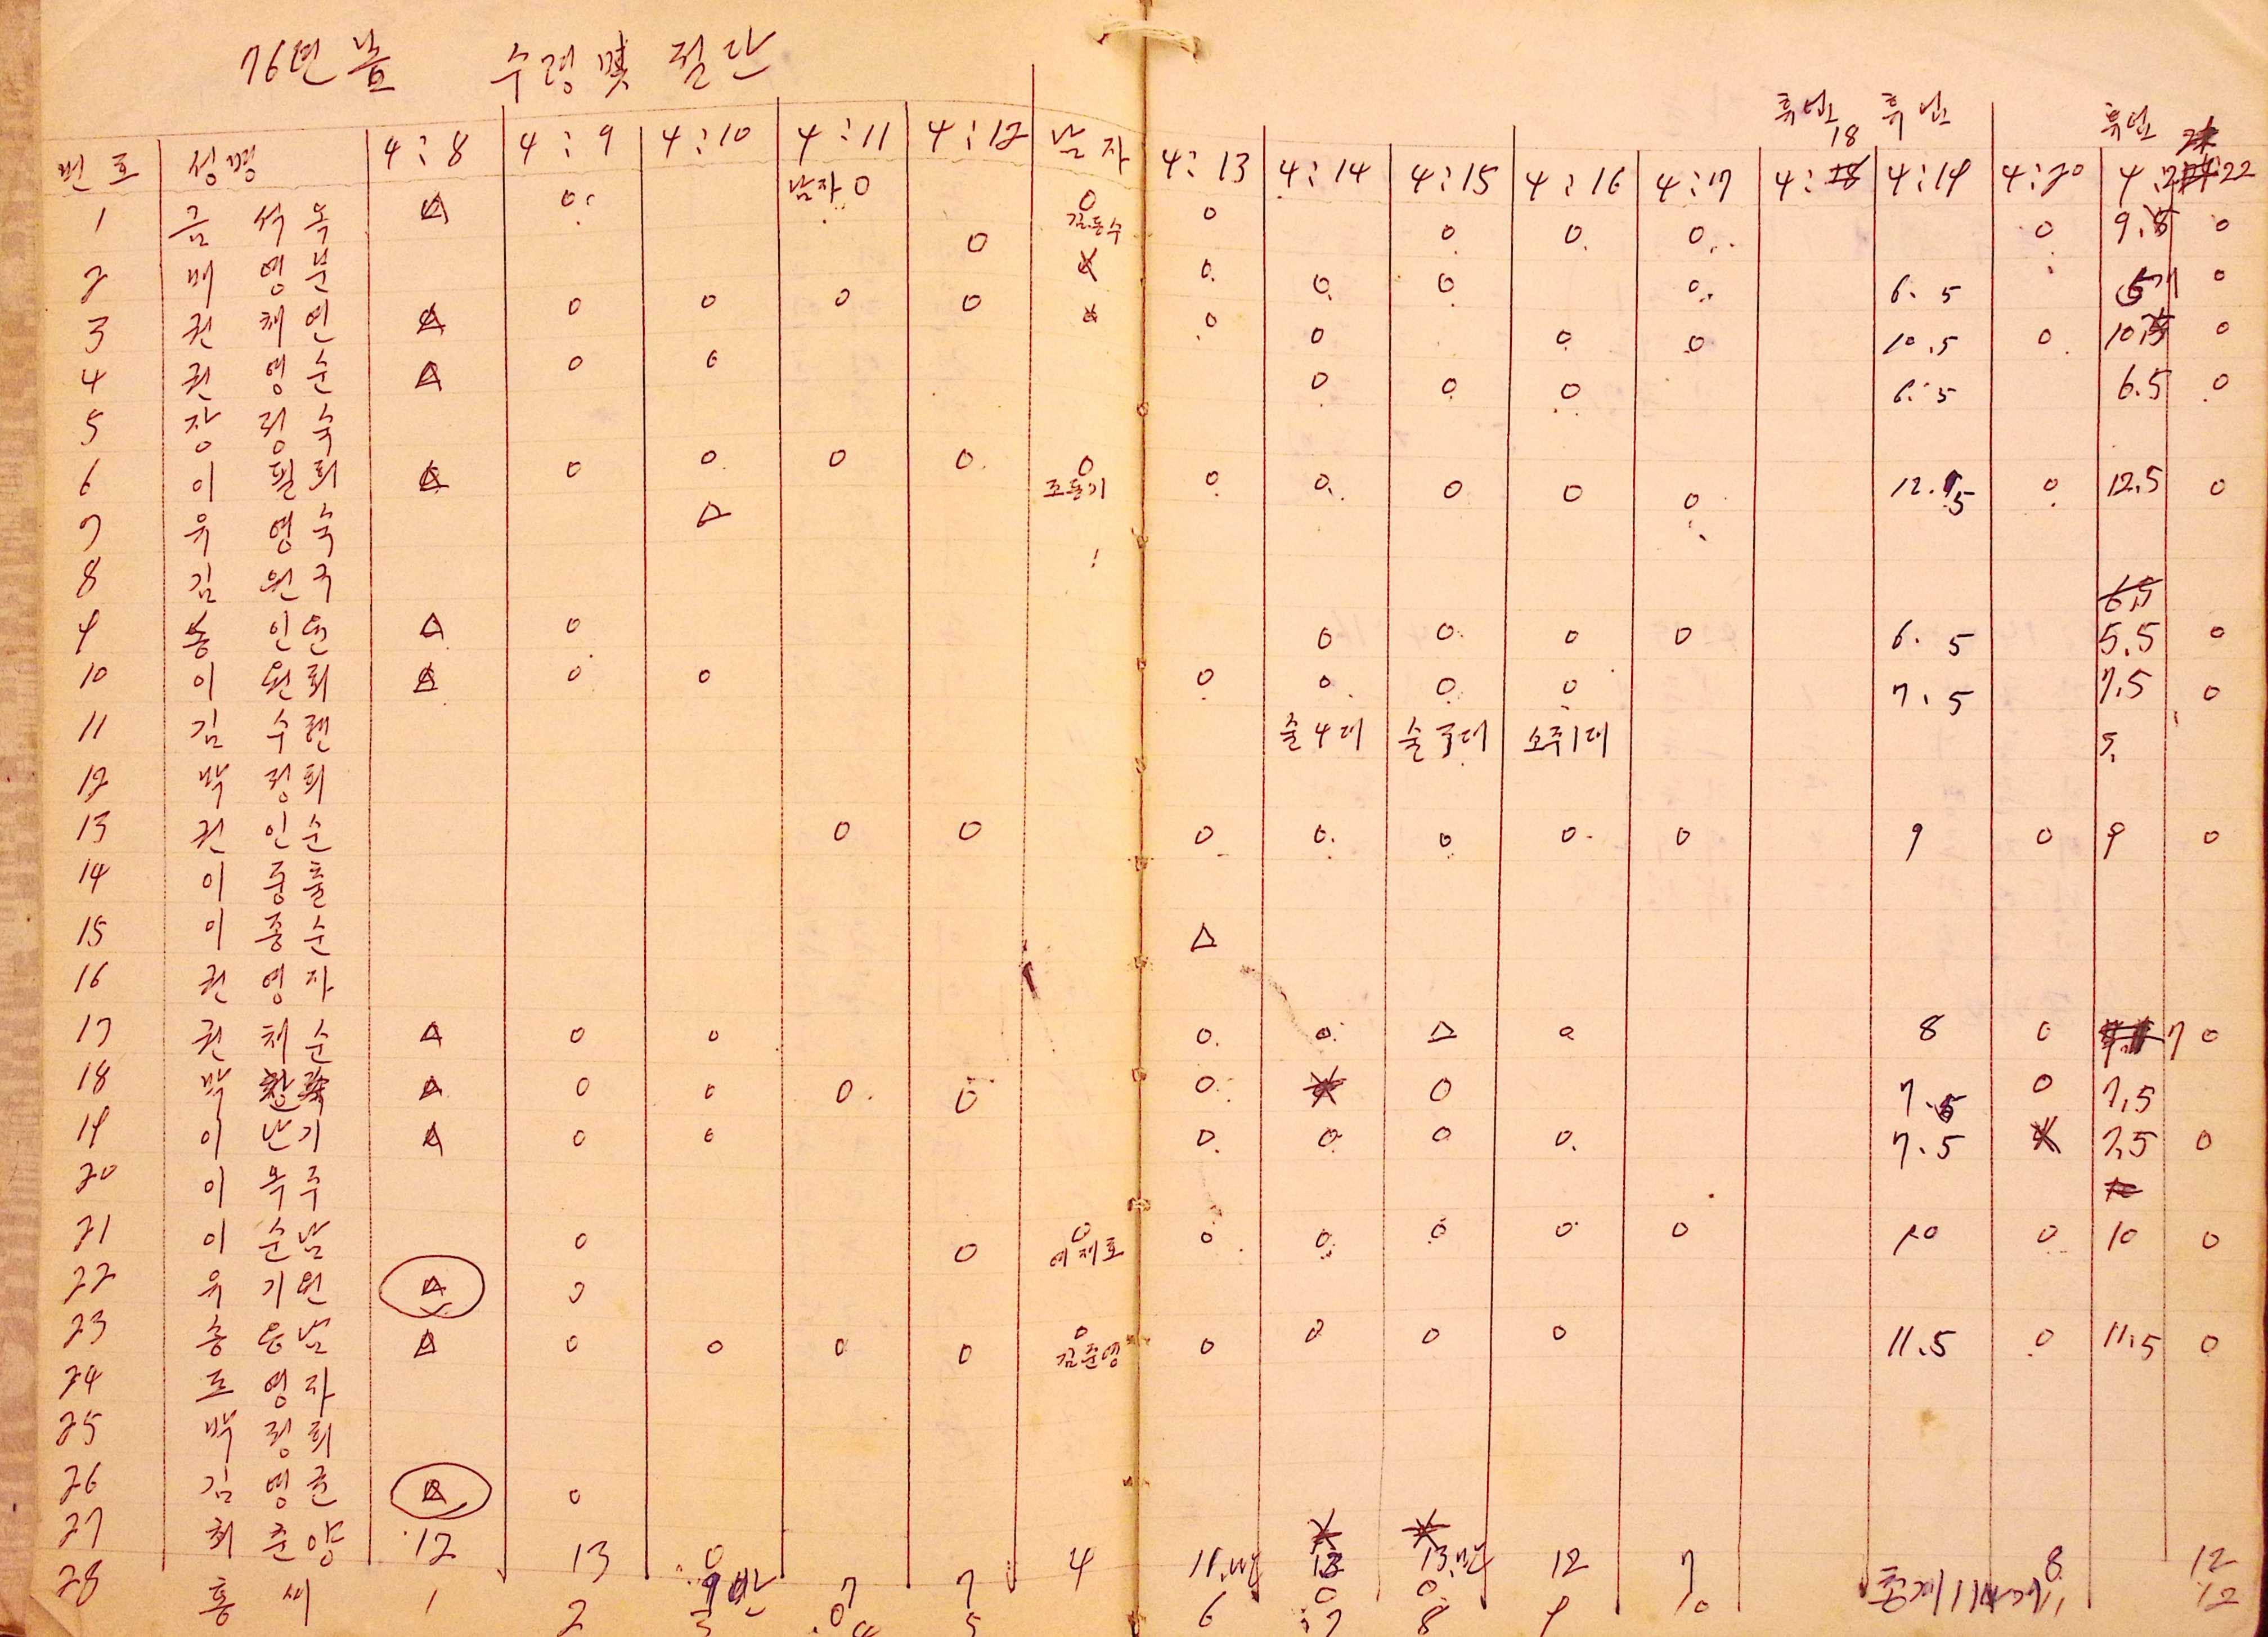 76년 봄 수령 및 절단
휴남 휴남 휴남
번호 성명 4:8 4:9 4:10 4:11 4:12 남자 4:13 4:14 4:15 4:16 4:17 4:18 4:19 4:20 4: 22
남자 0
1 금석옥 △ 0 0 0 김동수 0 0 0 0 0 9.5 0
2 영분 0 0 0 0 6.5 0
3 권채연 △ 0 0 0 0 0 0 0 0 10.5 0 10.5 0
4 권영순 △ 0 0 0 0 0 6.5 6.5 0
5 장정숙
6 이필희 △ 0 0 0 0 0 조동기 0 0 0 0 0 12.5 0 12.5 0
7 유영숙 △
8 김원국
9 송인연 △ 0 0 0 0 0 6.5 5.5 0
10 이원희 △ 0 0 0 0 0 0 7.5 7.5 0
11 김수련 술4대 술3대 소주1대 5.
12 박정희
13 권인순 0 0 0 0 0 0 0 9 0 9 0
14 이중출
15 이종순 △
16 권영자
17 권채순 △ 0 0 0 0 △ 0 8 0 7 0
18 박 △ 0 0 0 0 0 0 7.5 0 7.5
19 이난기 △ 0 0 0 0 0 0 7.5 7.5 0
20 이옥주
21 이순남 0 0 0 0 0 0 0 0 10 0 10 0
22 유기원 △ 0
23 송응남 △ 0 0 0 0 0 김준영 0 0 0 0 11.5 0 11.5 0
24 조영자
25 박정희
26 김영군 △ 0
27 최준양 12 13 9반 7 7 4 11.반 13 13.반 12 7 8 12
28 홍씨 1 2 3 4 5 6 7 8 9 10 총계 11 12